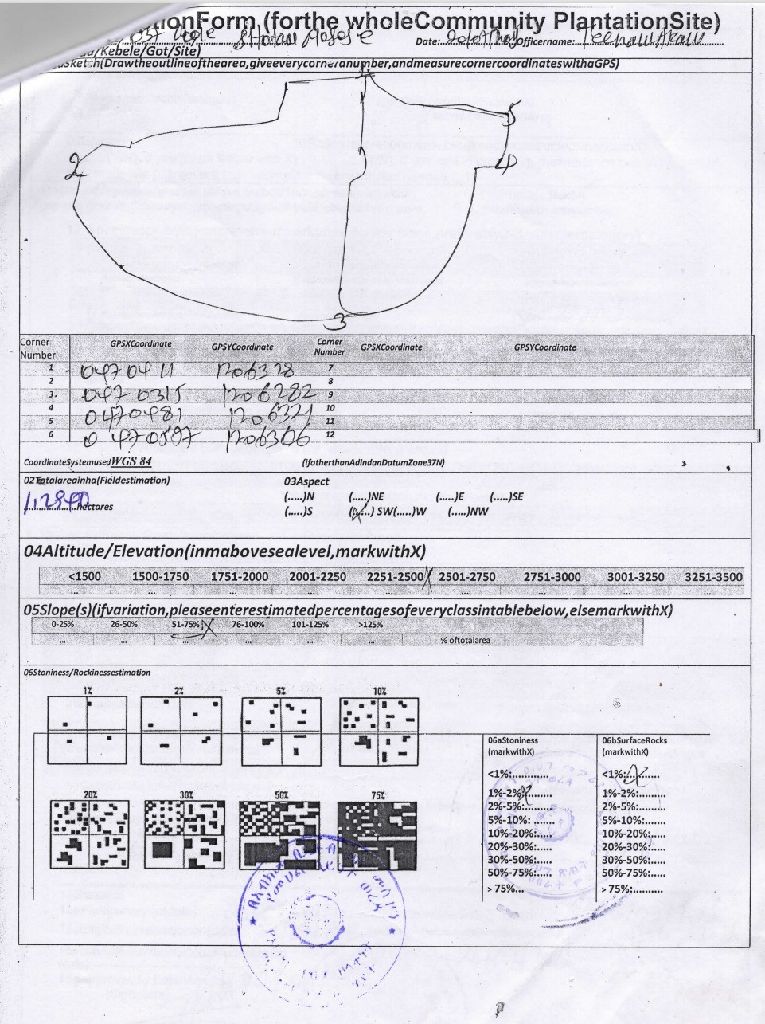 tionForm (forthe wholeCommunity PlantationSite)
Date: Officername:
/Kebele/Got/Site)
Sketch(Drawtheoutlineofthearea,giveeverycorneranumber,andmeasurecornercoordinateswithaGPS)
2
5
4
3
Corner Number GPSXCoordinate GPSYCoordinate Corner Number GPSXCoordinate GPSYCoordinate
1 0470411 1206328 7
2 8
3. 0470315 1206282 9
4 0470481 1206321 10
5 11
6 0470597 1206306 12
CoordinateSystemused WGS 84 (IfotherthanAdindanDatumZone37N)
02Totalareainha(Fieldestimation) 03Aspect
hectares
(.....)N (.....)NE (.....)E (.....)SE
(.....)S (..X..) SW(.....)W (.....)NW
04Altitude/Elevation(inmabovesealevel,markwithX)
<1500 1500-1750 1751-2000 2001-2250 2251-2500 X 2501-2750 2751-3000 3001-3250 3251-3500
... ... ... ... ... ... ... ... ...
05Slope(s)(ifvariation,pleaseenterestimatedpercentagesofeveryclassintablebelow,elsemarkwithX)
0-25% 26-50% 51-75% X 76-100% 101-125% >125%
... ... ... ... ... ... % oftotalarea
06Stoniness/Rockinessestimation
1% 2% 5% 10%
20% 30% 50% 75%
06aStoniness (markwithX)
<1%:............
1%-2% X
2%-5%:.........
5%-10%: .......
10%-20%:.....
20%-30%:.....
30%-50%:.....
50%-75%:.....
> 75%...
06bSurfaceRocks (markwithX)
<1%: X
1%-2%:.........
2%-5%:.........
5%-10%:........
10%-20%:.....
20%-30%:.....
30%-50%:.....
50%-75%:.....
> 75%:..........